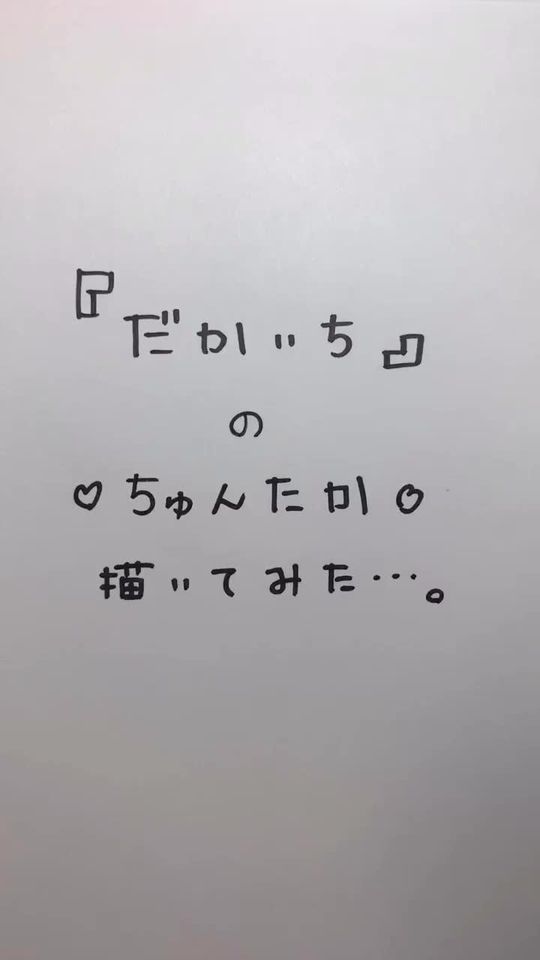 『だかいち』
の
♡ちゅんたか♡
描いてみた…。